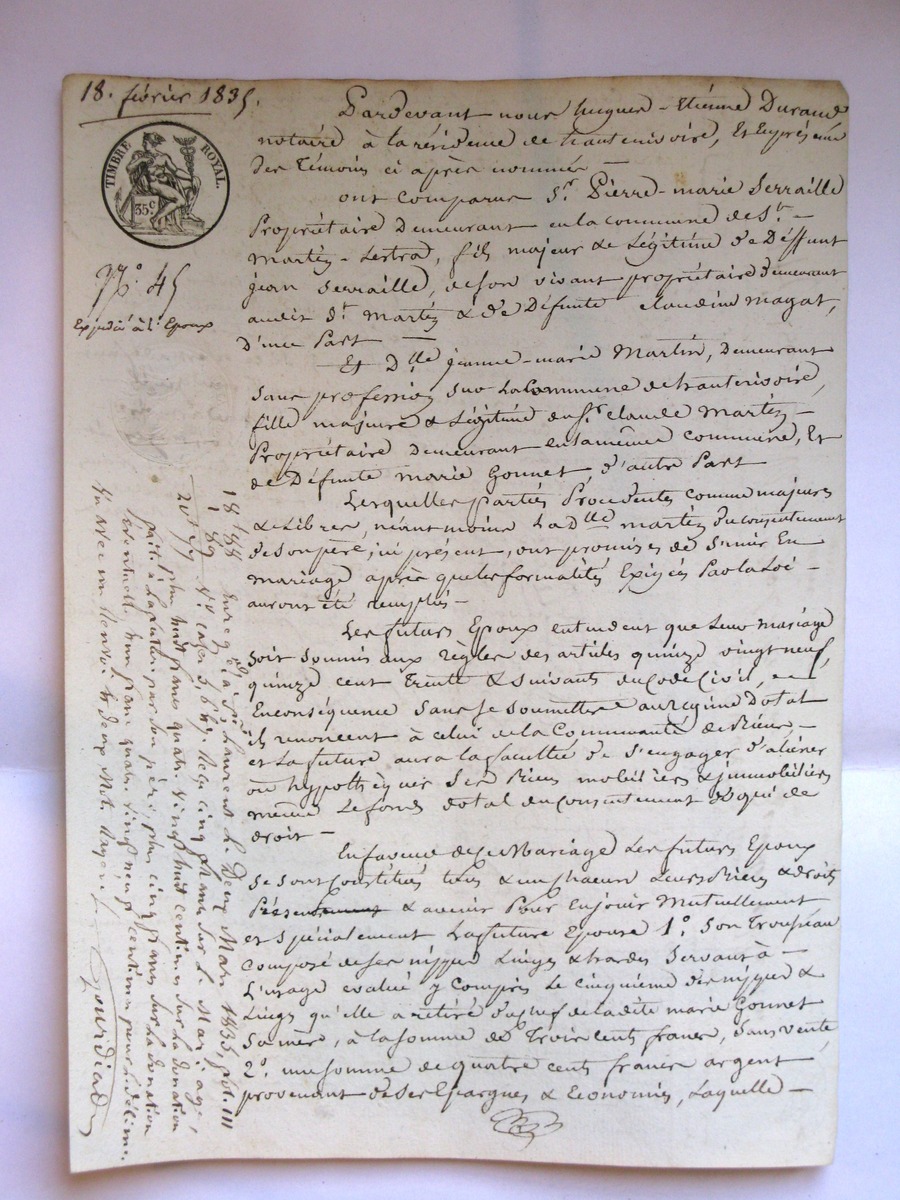 18. février 1835.
TIMBRE ROYAL.
35c
N.° 45
Expédié à l'Epoux
Pardevant nous hugues-Etienne Durand
notaire à la résidence de hauterivoire, Et En présence
des témoins ci après nommés —
ont comparus Sr. Pierre-marie Serraille
Propriétaire Demeurant en la commune de St. —
Martin-Lestra, fils majeur & Légitime de Deffunt
jean Serraille, de son vivant propriétaire demeurant
audit St. Martin & de Défunte claudine magat,
D'une Part —
Et Dlle jeanne-marie Martin, Demeurant
sans profession sur La Commune de hauterivoire,
fille majeure & Légitime du Sr. claude Martin —
Propriétaire demeurant en la même commune, Et
de Défunte marie Gonnet, d'autre Part
Lesquelles parties Procédantes comme majeures
& Libres, néanmoins La dlle martin du consentement
de son père, ici présent, ont promises de s'unir En
mariage après que les formalités Exigées Par la Loi —
auront été remplies —
Les futurs Epoux entendent que Leur mariage
soit soumis aux règles des articles quinze vingt neuf,
quinze cent Trente & suivants du Code Civil, en
Enconséquence sans se soumettre au régime Dotal
ils renoncent à celui de la Communauté de Biens —
et La future aura la faculté de s'engager d'aliéner
ou hypothéquer ses Biens mobiliers & immobiliers
même Le fonds dotal du consentement de qui de
droit —
En faveur de ce Mariage Les futurs Epoux
se sont constitués tous & un chacun Leurs Biens & droits
Présents & avenir Pour En jouir Mutuellement
et spécialement La future Epouse 1.° Son Trousseau
composé de ses nippes Linges & hardes Servant à —
L'usage évalué y Compris Le cinquième des nippes &
Linges qu'elle a retiré du chef de la dite marie Gonnet
sa mère, à la somme de Trois cents francs, sans vente
2.° une somme de quatre cents francs argent
provenant de ses Epargnes & Economies, Laquelle —
Enreg. à St. Laurent Le Deux Mars 1835, fol. 111
V.° cases 5, 6 & 7. Reçu cinq francs sur Le Mariage,
plus huit francs quatre vingt huit centimes sur La donation
faite à La future par son père, plus cinq francs sur La donation
éventuelle, & un franc quatre vingt neuf centimes pour Le décime.